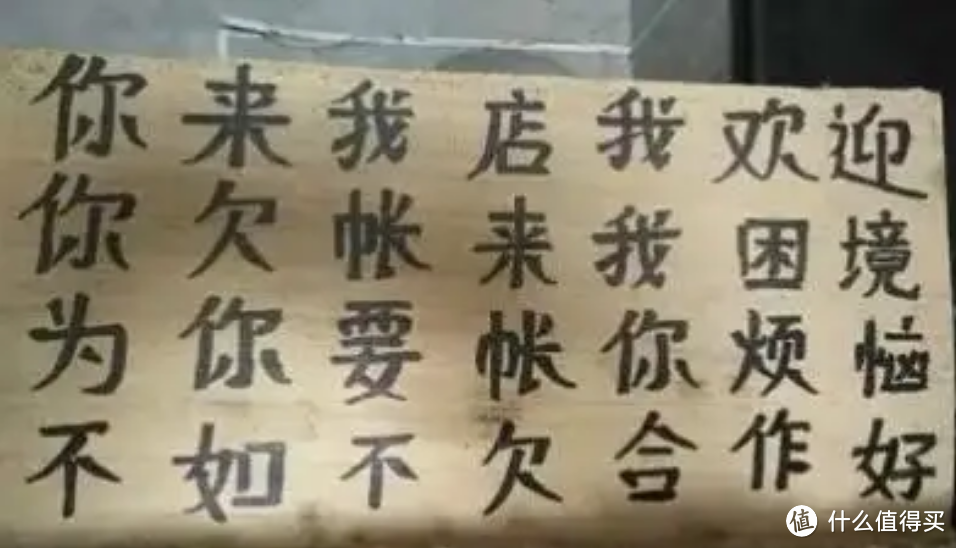 你来我店我欢迎
你欠帐来我困境
为你要帐你烦恼
不如不欠合作好
值 什么值得买